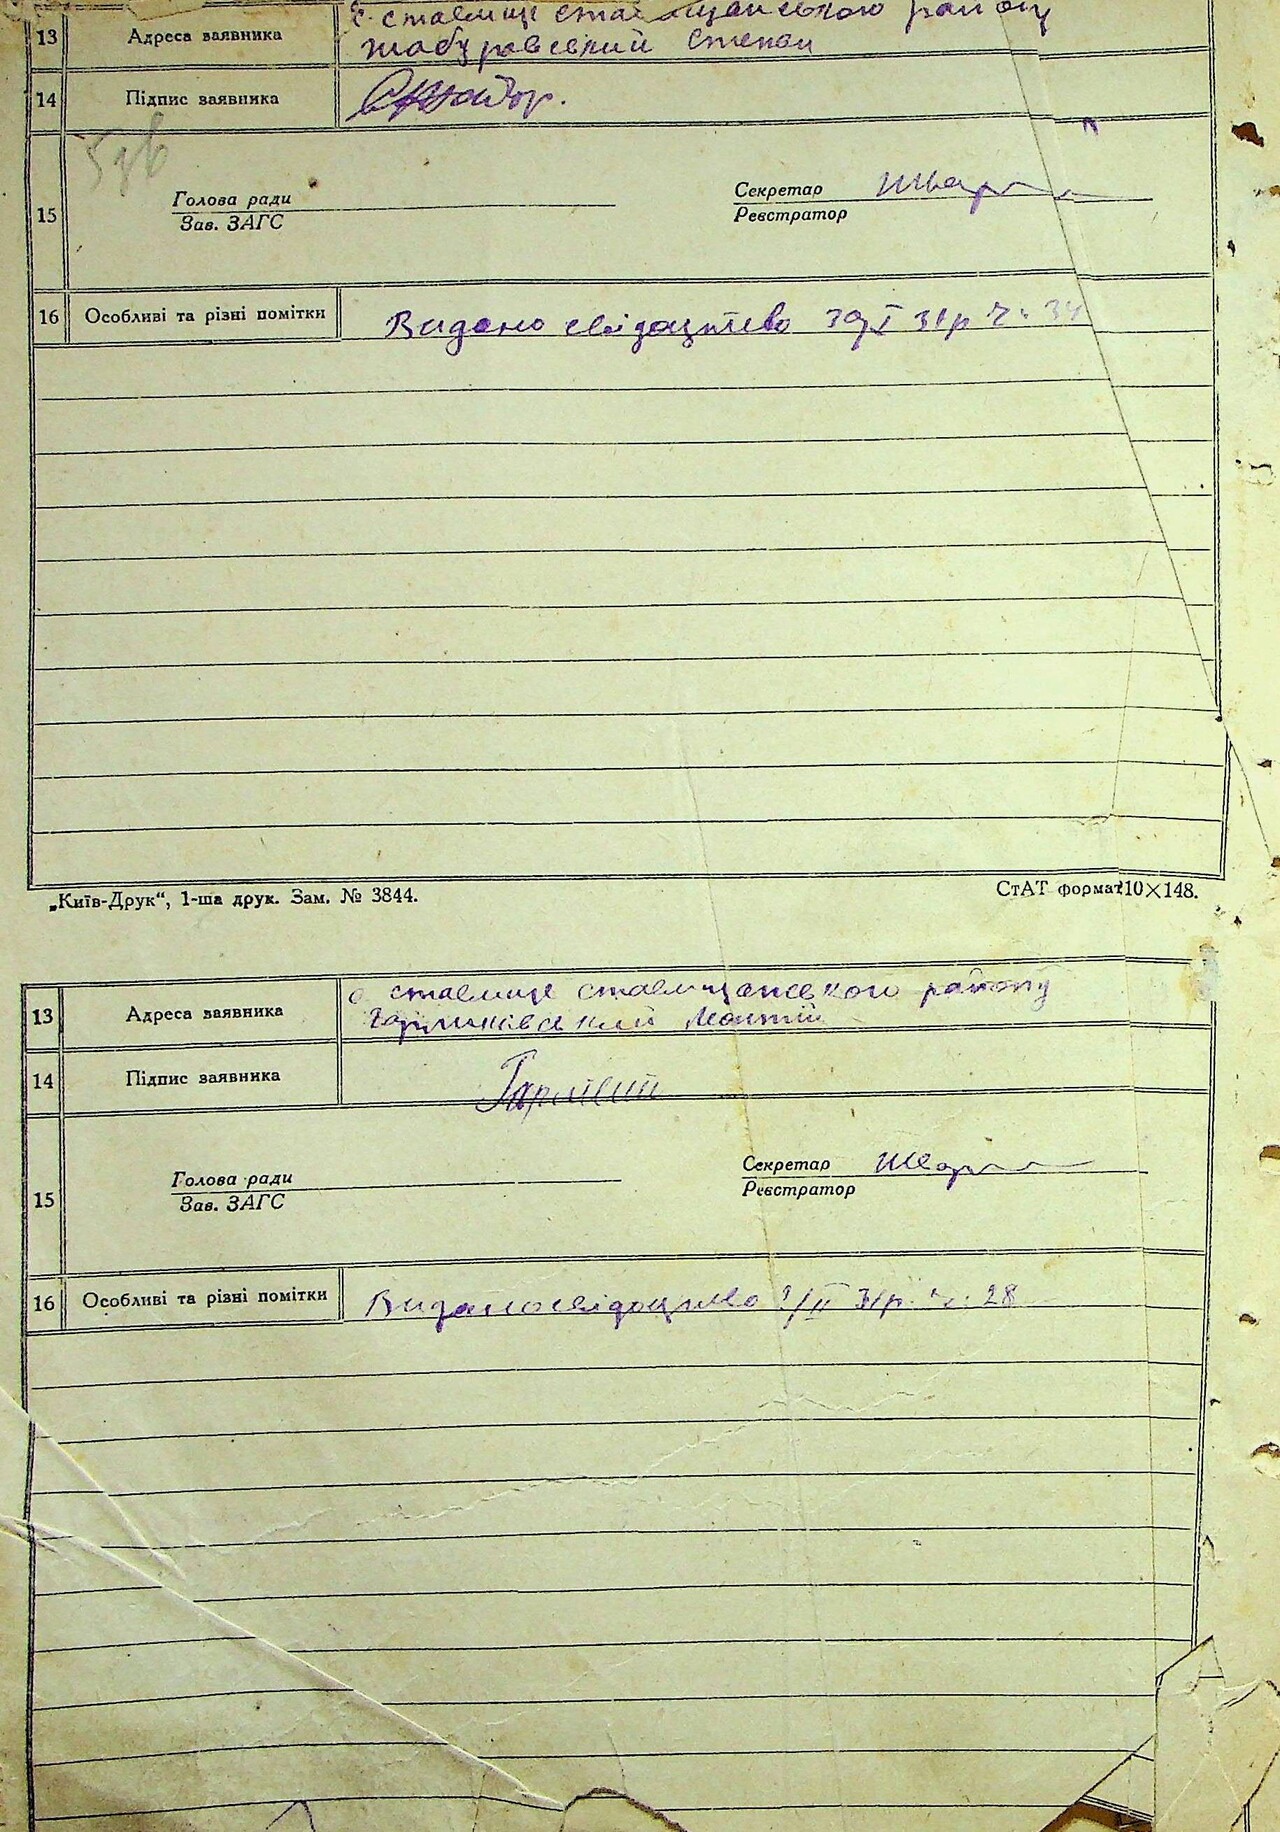 13 Адреса заявника с. ставище ставищанського району
Жабуровский Степан
14 Підпис заявника
15 Голова ради
Зав. ЗАГС
Секретар
Реєстратор
16 Особливі та різні помітки Видано свідоцтво 31р ч. 34
„Київ-Друк“, 1-ша друк. Зам. № 3844.
СтАТ формат 10×148.
13 Адреса заявника с ставище ставищанського району
14 Підпис заявника
15 Голова ради
Зав. ЗАГС
Секретар
Реєстратор
16 Особливі та різні помітки Видано свідоцтво /II 31р. ч. 28